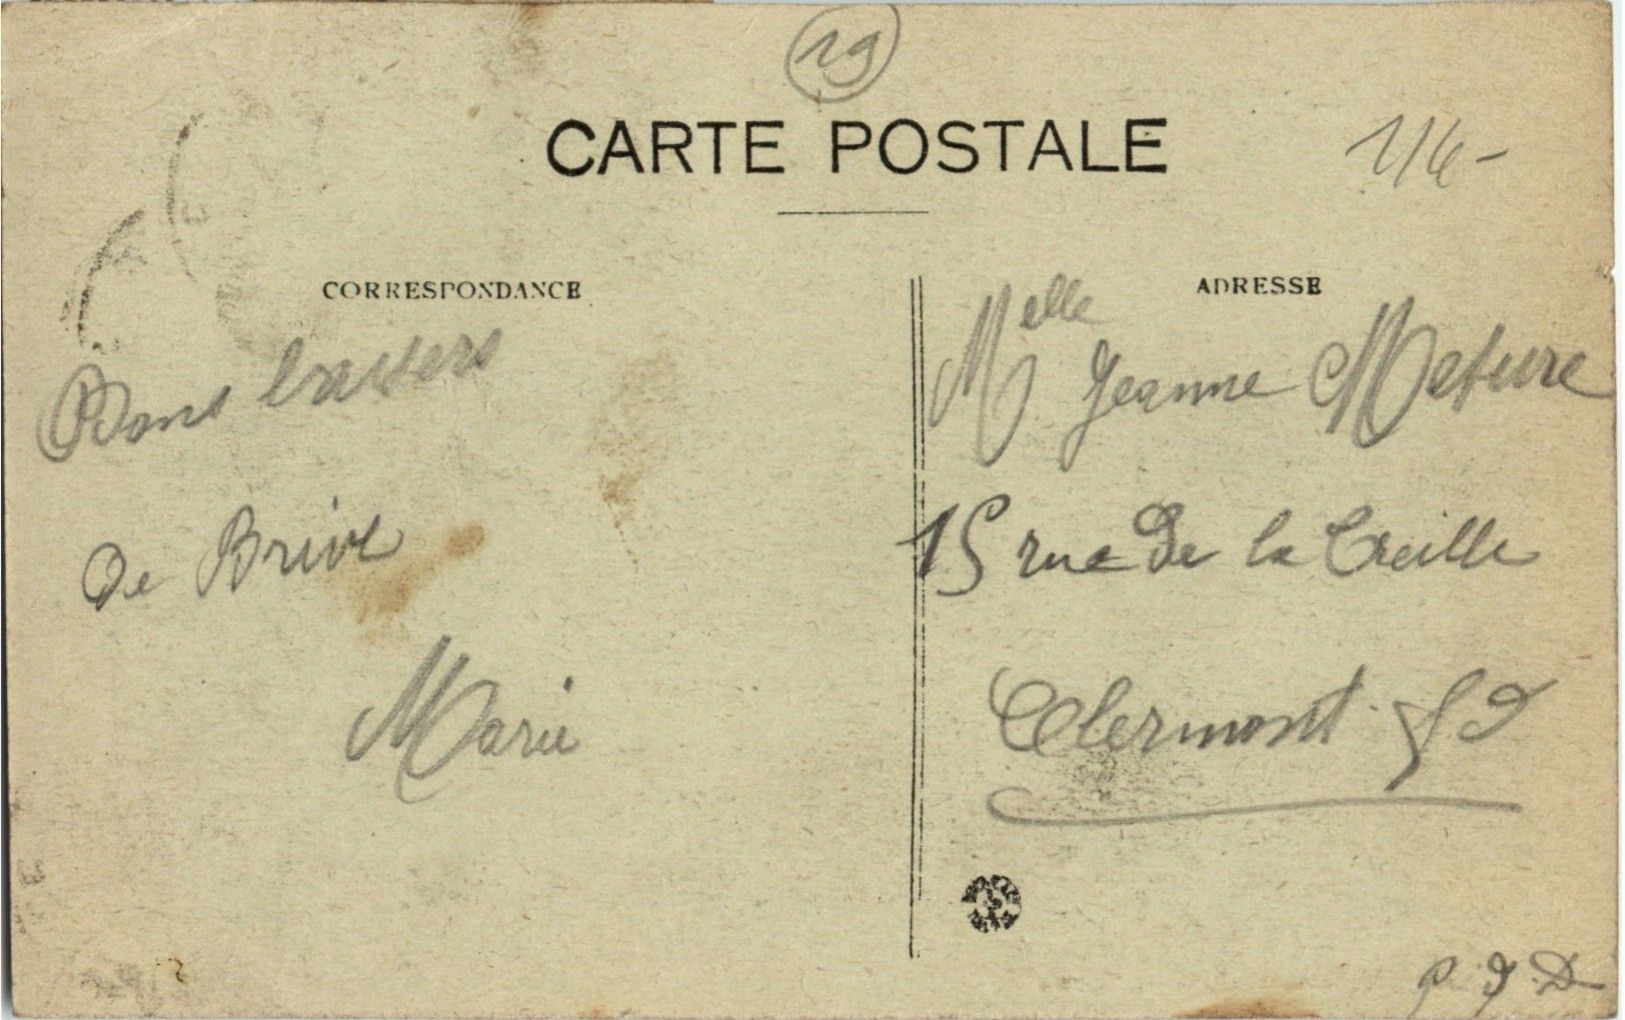 19
CARTE POSTALE
1/4-
CORRESPONDANCE
Bons baisers
De Brive
Marie
ADRESSE
Melle Jeanne
15 rue De la Treille
Clermont Fd
P. D. D